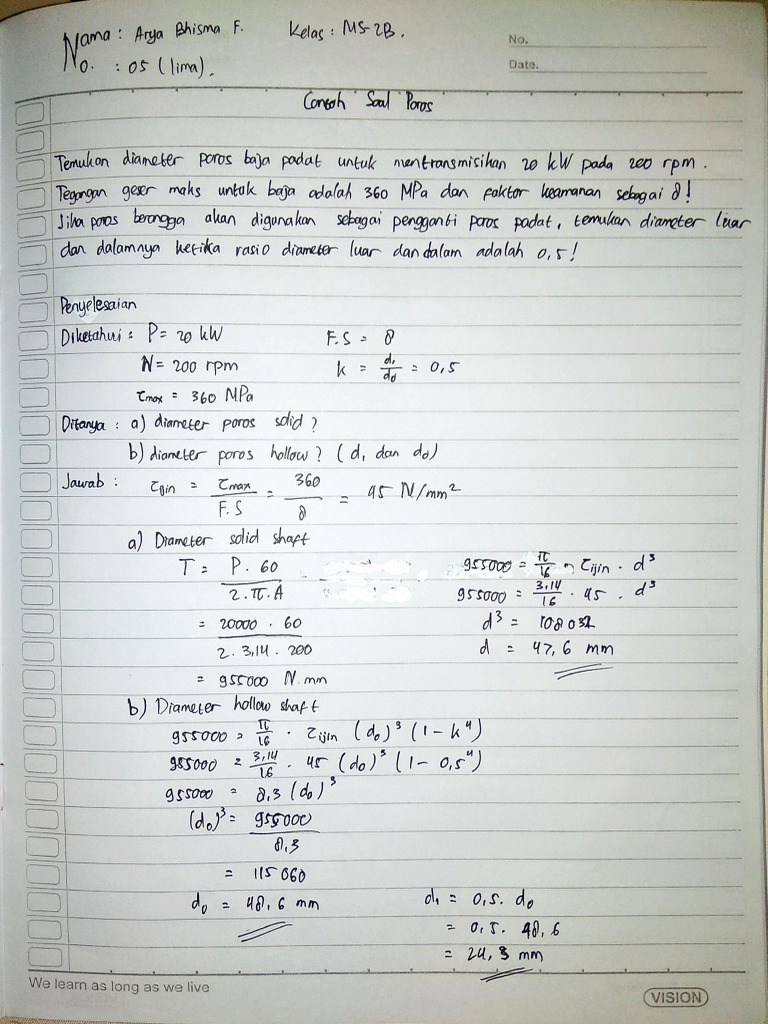 Nama : Arya Bhisma F. Kelas : MS-2B.
No. : 05 (lima).
No.
Date.
Contoh Soal Poros
Temukan diameter poros baja padat untuk mentransmisikan 20 kW pada 200 rpm.
Tegangan geser maks untuk baja adalah 360 MPa dan faktor keamanan sebagai 8!
Jika poros berongga akan digunakan sebagai pengganti poros padat, temukan diameter luar
dan dalamnya ketika rasio diameter luar dan dalam adalah 0,5!
Penyelesaian
Diketahui : P = 20 kW F.S = 8
N = 200 rpm k = d₁/d₀ = 0,5
τmax = 360 MPa
Ditanya : a) diameter poros solid ?
b) diameter poros hollow ? (d₁ dan d₀)
Jawab : τijin = τmax / F.S = 360 / 8 = 45 N/mm²
a) Diameter solid shaft
T = P . 60 / 2 . π . A
= 20000 . 60 / 2 . 3,14 . 200
= 955000 N.mm
955000 = π/16 . τijin . d³
955000 = 3,14/16 . 45 . d³
d³ = 108032
d = 47,6 mm
b) Diameter hollow shaft
955000 = π/16 . τijin (d₀)³ (1 - k⁴)
955000 = 3,14/16 . 45 (d₀)³ (1 - 0,5⁴)
955000 = 8,3 (d₀)³
(d₀)³ = 955000 / 8,3
= 115060
d₀ = 48,6 mm
d₁ = 0,5 . d₀
= 0,5 . 48,6
= 24,3 mm
We learn as long as we live
VISION